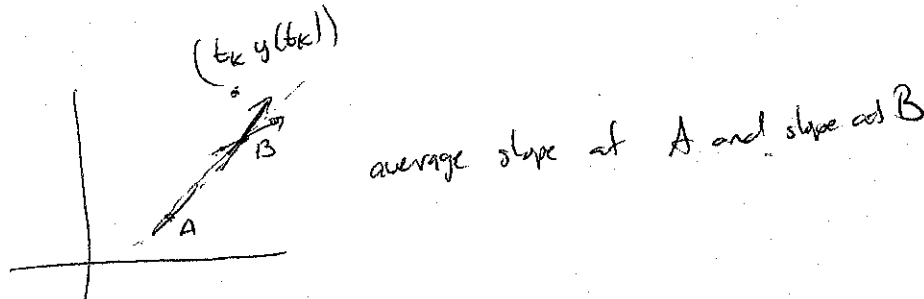 (t_k y(t_k))
B
A
average slope at A and slope at B